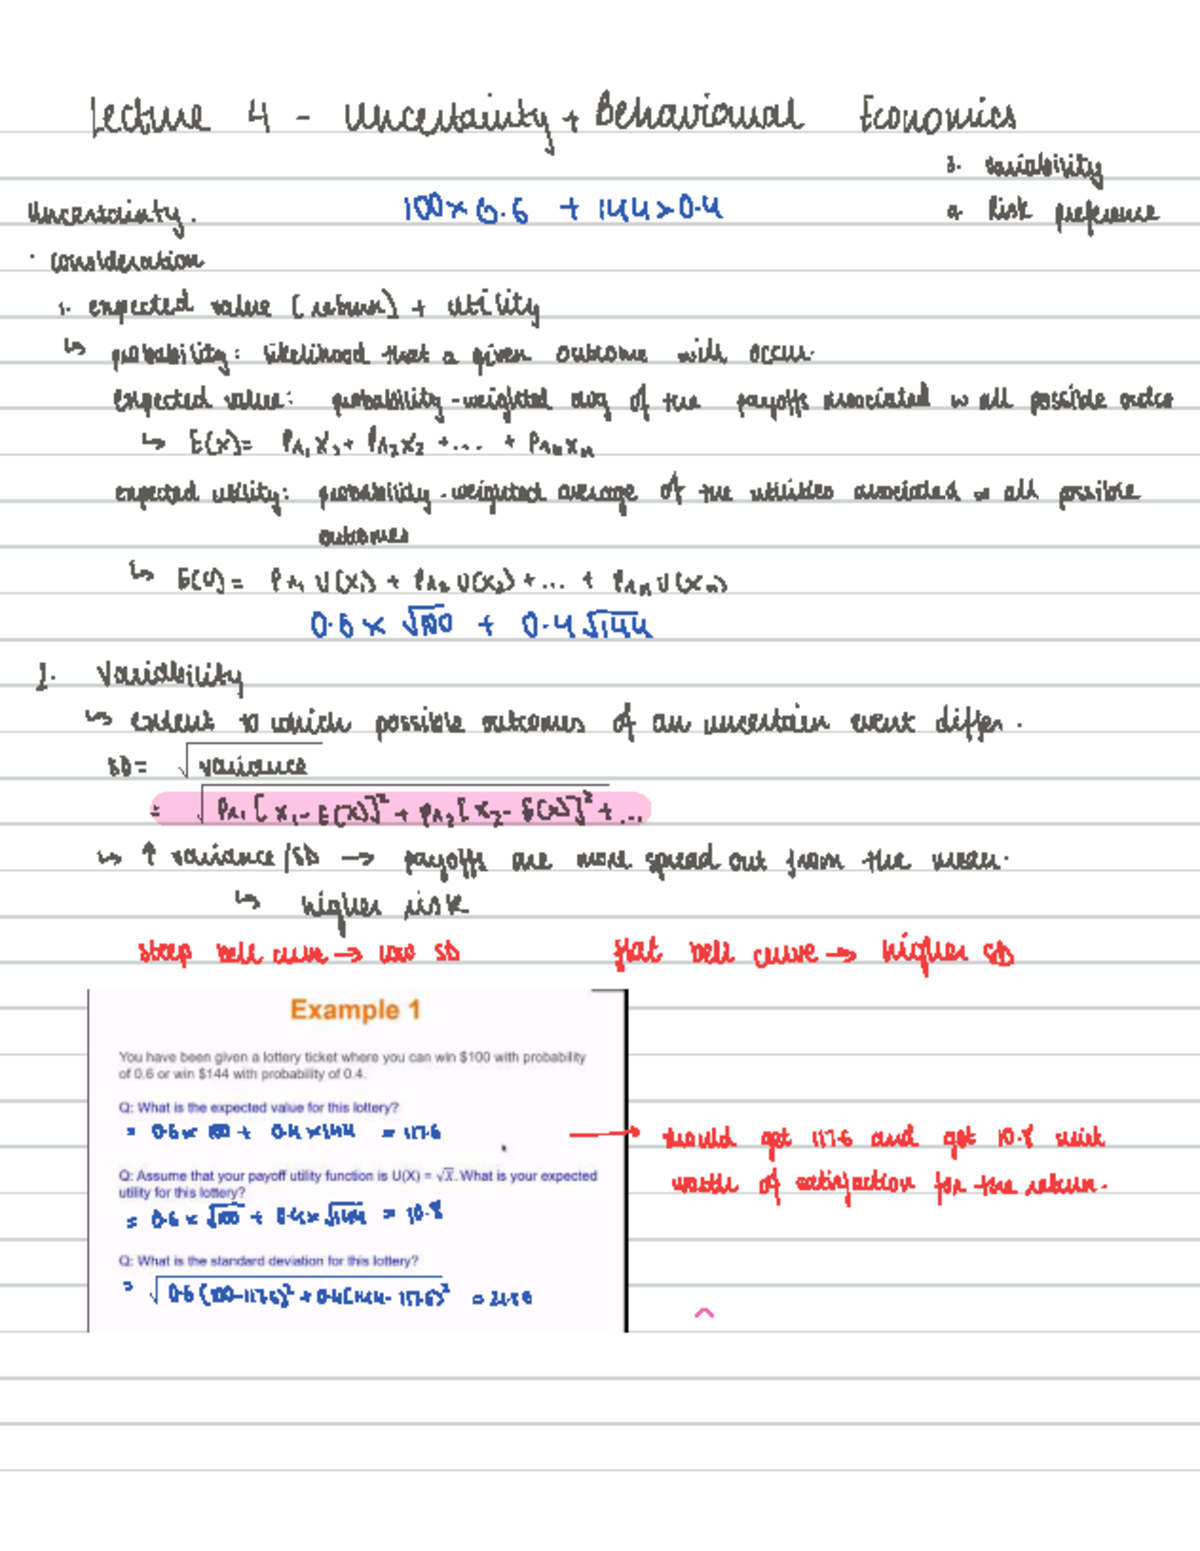 Lecture 4 - Uncertainty + Behavioural Economics
3. Variability
Uncertainty.
100 x 0.6 + 144 x 0.4
Risk preference
· consideration
1. expected value (return) + utility
↳ probability: likelihood that a given outcome will occur.
expected value: probability-weighted avg of the payoffs associated w all possible
↳ E(X) = Pr₁X₁ + Pr₂X₂ + ... + PrₙXₙ
expected utility: probability-weighted average of the utilities associated w all possible
outcomes
↳ E(U) = Pr₁ U(X₁) + Pr₂ U(X₂) + ... + Prₙ U(Xₙ)
0.6 x √100 + 0.4√144
2. Variability
↳ extent to which possible outcomes of an uncertain event differ.
SD = √variance
= √Pr₁[X₁ - E(X)]² + Pr₂[X₂ - E(X)]² + ...
↳ ↑ variance/SD → payoffs are more spread out from the mean.
↳ higher risk
steep bell curve → low SD
flat bell curve → higher SD
Example 1
You have been given a lottery ticket where you can win $100 with probability
of 0.6 or win $144 with probability of 0.4.
Q: What is the expected value for this lottery?
= 0.6 x 100 + 0.4 x 144 = 117.6
→ would get 117.6 and get 10.8
worth of satisfaction for the return.
Q: Assume that your payoff utility function is U(X) = √X. What is your expected
utility for this lottery?
= 0.6 x √100 + 0.4 x √144 = 10.8
Q: What is the standard deviation for this lottery?
= √0.6(100-117.6)² + 0.4(144-117.6)²